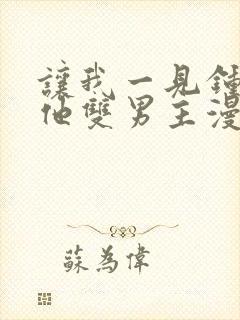 讓我一見鍾
他雙男主漫
蘇為偉